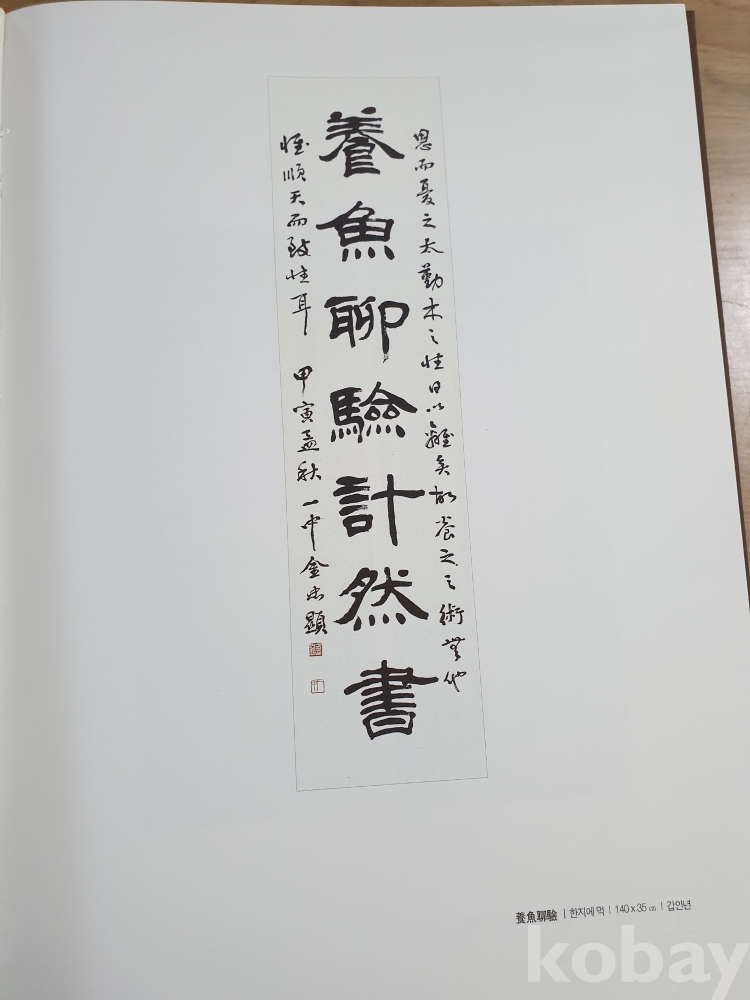 恩而憂之太勤木之性日以離矣故養之之術無他
養魚聊驗計然書
惟順天而致性耳 甲寅孟秋 一中 金忠顯
養魚聊驗 | 한지에 먹 | 140 x 35 ㎝ | 갑인년
kobay